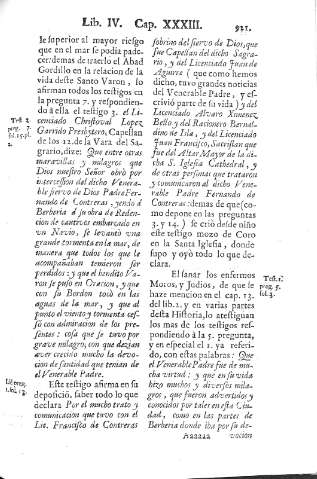 Lib. IV. Cap. XXXIII. 931.
se superior al mayor riesgo
que en el mar se podía padecer:
demas de traerlo el Abad
Gordillo en la relacion de la
vida deste Santo Varon, lo
afirman todos los testigos en
la pregunta 7. y respondiendo
à ella el testigo 3. el Licenciado
Christoval Lopez
Garrido Presbytero, Capellan
de los 12. de la Vara del Sagrario,
dize: Que entre otras
maravillas y milagros que
Dios nuestro Señor obrò por
intercession del dicho Venerable
siervo de Dios Padre Fernando
de Contreras, yendo à
Berberia à su obra de Redencion
de cautivos embarcado en
un Navio, se levantò una
grande tormenta en la mar, de
manera que todos los que le
acompañaban temieron ser
perdidos: y que el bendito Varon
se puso en Oracion, y que
con su Bordon tocò en las
aguas de la mar, y que al
punto el viento y tormenta cessò
con admiracion de los presentes:
cosa que se tuvo por
grave milagro, con que dezian
aver crecido mucho la devocion
de santidad que tenian de
el Venerable Padre.
Este testigo afirma en su
deposició, saber todo lo que
declara Por el mucho trato y
comunicacion que tuvo con el
Lic. Francisco de Contreras
sobrino del siervo de Dios, que
fue Capellan del dicho Sagrario,
y del Licenciado Juan de
Aguirre (que como hemos
dicho, tuvo grandes noticias
del Venerable Padre, y escrivió
parte de su vida) y del
Licenciado Alvaro Ximenez
Bello y del Racionero Bernaldino
de Isla, y del Licenciado
Juan Francisco, Sacristan que
fue del Altar Mayor de la dicha
S. Iglesia Cathedral, y
de otras personas que trataron
y comunicaron al dicho Venerable
Padre Fernando de
Contreras: demas de que (como
depone en las preguntas
3. y 14.) se crió desde niño
este testigo mozo de Coro
en la Santa Iglesia, donde
supo y oyò todo lo que declara.
El sanar los enfermos
Moros, y Judios, de que se
haze mencion en el cap. 13.
del lib. 2. y en varias partes
desta Historia, lo atestiguan
los mas de los testigos respondiendo
à la 5. pregunta,
y en especial el 1. ya referido,
con estas palabras: Que
el Venerable Padre fue de mucha
virtud: y que en su vida
hizo muchos y diversos milagros,
que fueron advertidos y
conocidos por tales en esta Ciudad,
como en las partes de
Berberia donde iba por su devocion
Aaaaaa